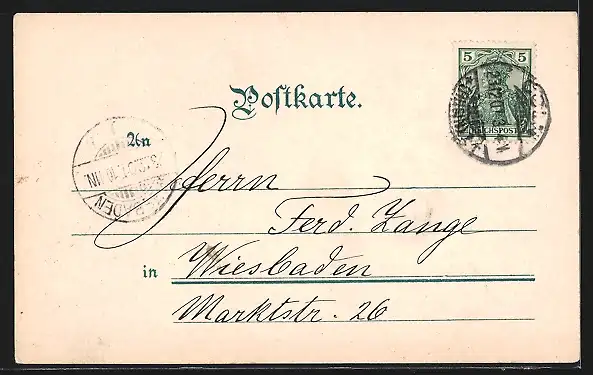 Postkarte.
5 5
REICHSPOST
An
Herrn
Ferd. Zange
in Wiesbaden
Marktstr. 26